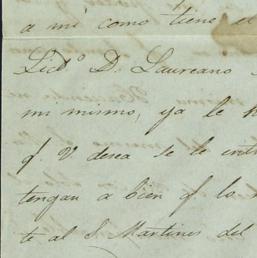 a mi como tiene el
Licdo. D. Laureano
mi mismo, ya le
q. V. desea se le
tengan a bien q. lo
te al S. Martines del